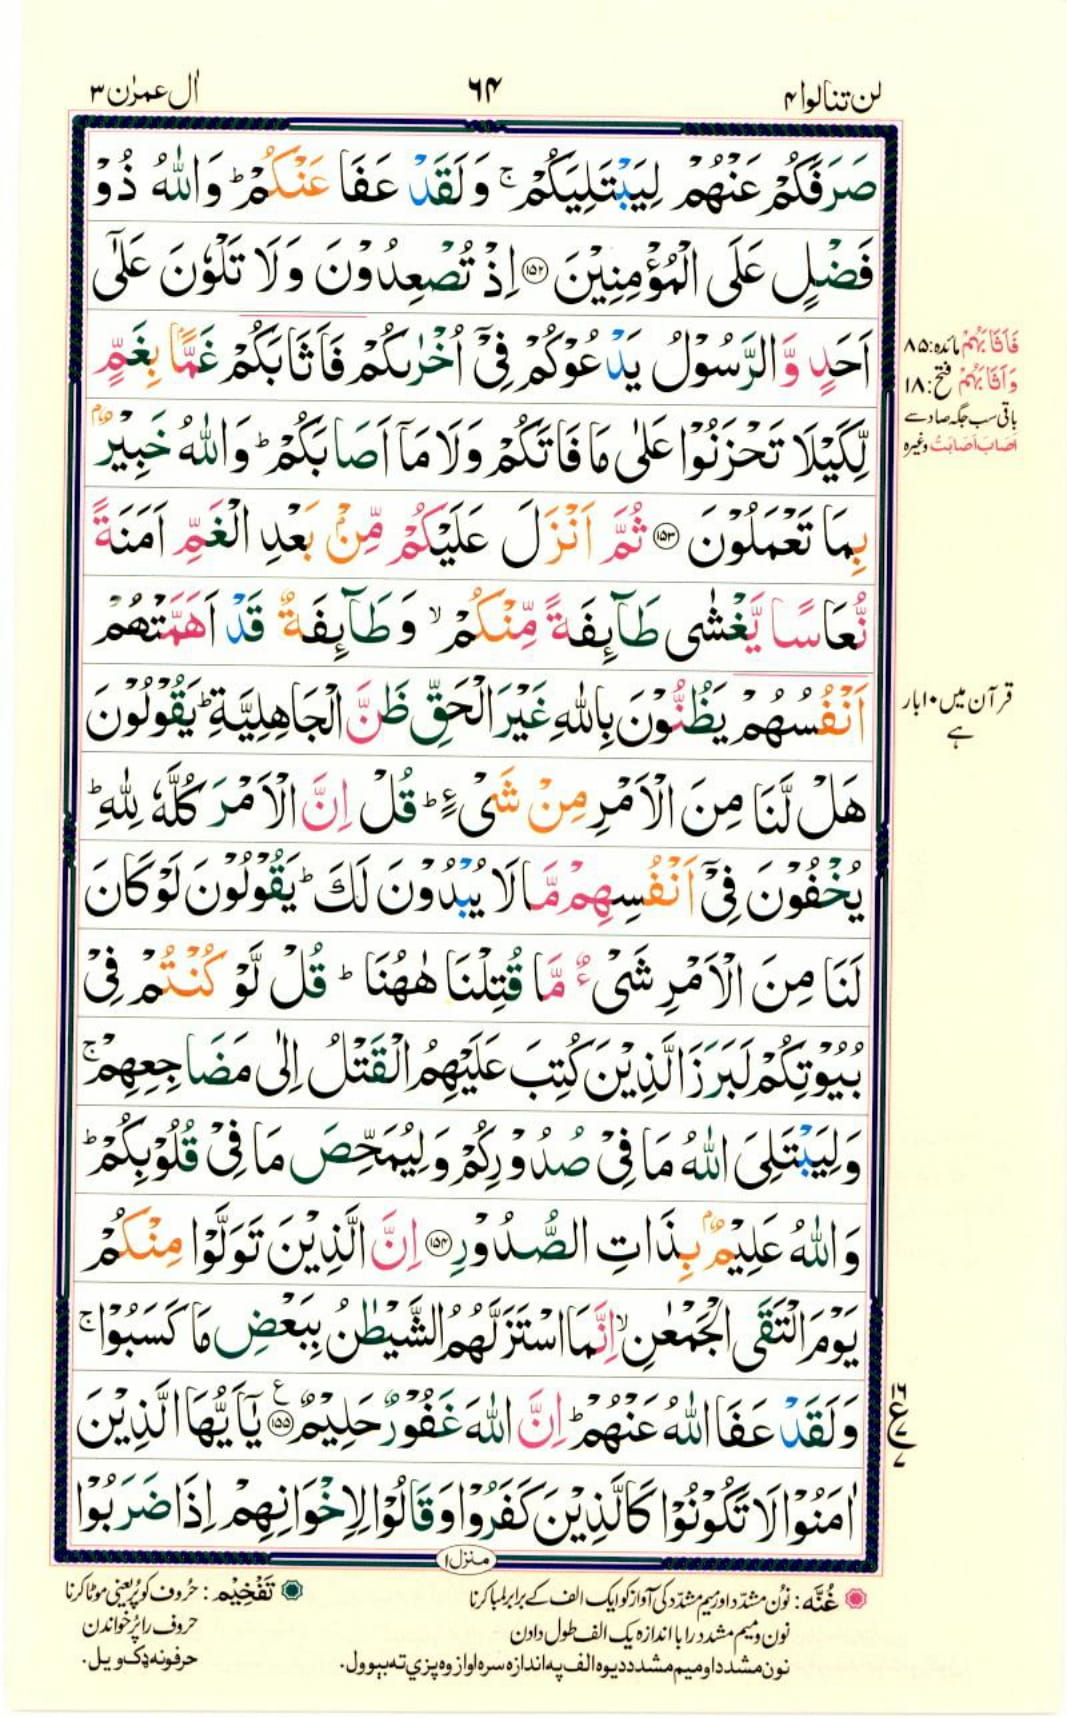 لن تنالوا ۴
۶۴
اٰل عمرٰن ۳
صَرَفَكُمْ عَنْهُمْ لِيَبْتَلِيَكُمْ ۚ وَلَقَدْ عَفَا عَنْكُمْ ؕ وَاللّٰهُ ذُوْ
فَضْلٍ عَلَى الْمُؤْمِنِيْنَ ۝۱۵۲ اِذْ تُصْعِدُوْنَ وَلَا تَلْوٗنَ عَلٰٓى
اَحَدٍ وَّالرَّسُوْلُ يَدْعُوْكُمْ فِيْٓ اُخْرٰىكُمْ فَاَثَابَكُمْ غَمًّۢا بِغَمٍّ
لِّكَيْلَا تَحْزَنُوْا عَلٰى مَا فَاتَكُمْ وَلَا مَآ اَصَابَكُمْ ؕ وَاللّٰهُ خَبِيْرٌۢ
بِمَا تَعْمَلُوْنَ ۝۱۵۳ ثُمَّ اَنْزَلَ عَلَيْكُمْ مِّنْۢ بَعْدِ الْغَمِّ اَمَنَةً
نُّعَاسًا يَّغْشٰى طَآئِفَةً مِّنْكُمْ ۙ وَطَآئِفَةٌ قَدْ اَهَمَّتْهُمْ
اَنْفُسُهُمْ يَظُنُّوْنَ بِاللّٰهِ غَيْرَ الْحَقِّ ظَنَّ الْجَاهِلِيَّةِ ؕ يَقُوْلُوْنَ
هَلْ لَّنَا مِنَ الْاَمْرِ مِنْ شَيْءٍ ؕ قُلْ اِنَّ الْاَمْرَ كُلَّهٗ لِلّٰهِ ؕ
يُخْفُوْنَ فِيْٓ اَنْفُسِهِمْ مَّا لَا يُبْدُوْنَ لَكَ ؕ يَقُوْلُوْنَ لَوْ كَانَ
لَنَا مِنَ الْاَمْرِ شَيْءٌ مَّا قُتِلْنَا هٰهُنَا ؕ قُلْ لَّوْ كُنْتُمْ فِيْ
بُيُوْتِكُمْ لَبَرَزَ الَّذِيْنَ كُتِبَ عَلَيْهِمُ الْقَتْلُ اِلٰى مَضَاجِعِهِمْ ۚ
وَلِيَبْتَلِيَ اللّٰهُ مَا فِيْ صُدُوْرِكُمْ وَلِيُمَحِّصَ مَا فِيْ قُلُوْبِكُمْ ؕ
وَاللّٰهُ عَلِيْمٌۢ بِذَاتِ الصُّدُوْرِ ۝۱۵۴ اِنَّ الَّذِيْنَ تَوَلَّوْا مِنْكُمْ
يَوْمَ الْتَقَى الْجَمْعٰنِ ۙ اِنَّمَا اسْتَزَلَّهُمُ الشَّيْطٰنُ بِبَعْضِ مَا كَسَبُوْا ۚ
وَلَقَدْ عَفَا اللّٰهُ عَنْهُمْ ؕ اِنَّ اللّٰهَ غَفُوْرٌ حَلِيْمٌ ۝۱۵۵ يٰٓاَيُّهَا الَّذِيْنَ
اٰمَنُوْا لَا تَكُوْنُوْا كَالَّذِيْنَ كَفَرُوْا وَقَالُوْا لِاِخْوَانِهِمْ اِذَا ضَرَبُوْا
فَاَثَابَهُمْ مائدہ: ۸۵
وَاَثَابَهُمْ فتح: ۱۸
باقی سب جگہ صاد سے
اَصَابَ اَصَابَتْ وغیرہ
قرآن میں ۱۰ بار
ہے
۱۶
ع
۷
۷
منزل ۱
غُنَّه: نون مشدّد اور میم مشدّد کی آواز کو ایک الف کے برابر لمبا کرنا
نون و میم مشدد را با اندازه یک الف طول دادن
نون مشدد او میم مشدد دیوه الف په اندازه سره اواز وه پزي ته بېوول.
تَفْخِيْم: حروف کو پُر یعنی موٹا کرنا
حروف را پُر خواندن
حرفونه ډک ویل.